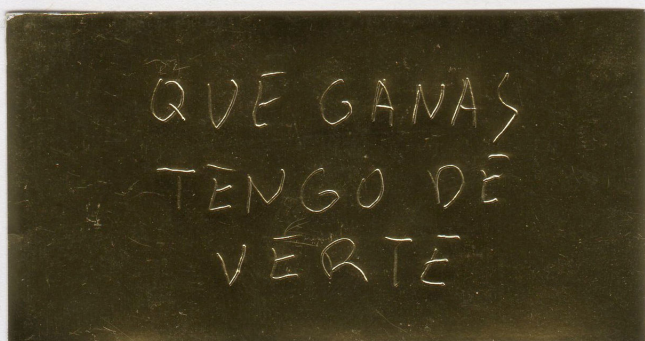 QUE GANAS
TENGO DE
VERTE